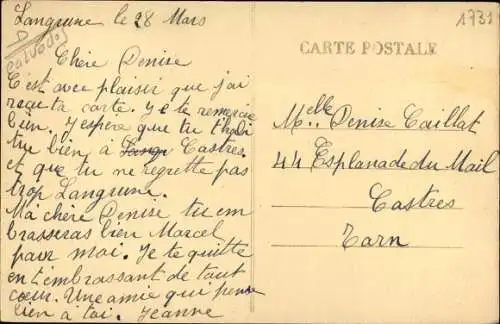 Langrune le 28 Mars
Calvados
Chère Denise
C'est avec plaisir que j'ai
reçu ta carte. Je te remercie
bien. J'espère que tu t'habi
tue bien à Castres.
et que tu ne regrette pas
trop Langrune.
Ma chère Denise tu em
brasseras bien Marcel
pour moi. Je te quitte
en t'embrassant de tout
cœur. Une amie qui pense
bien à toi. Jeanne
1731
CARTE POSTALE
Melle Denise Caillat
44 Esplanade du Mail
Castres
Tarn